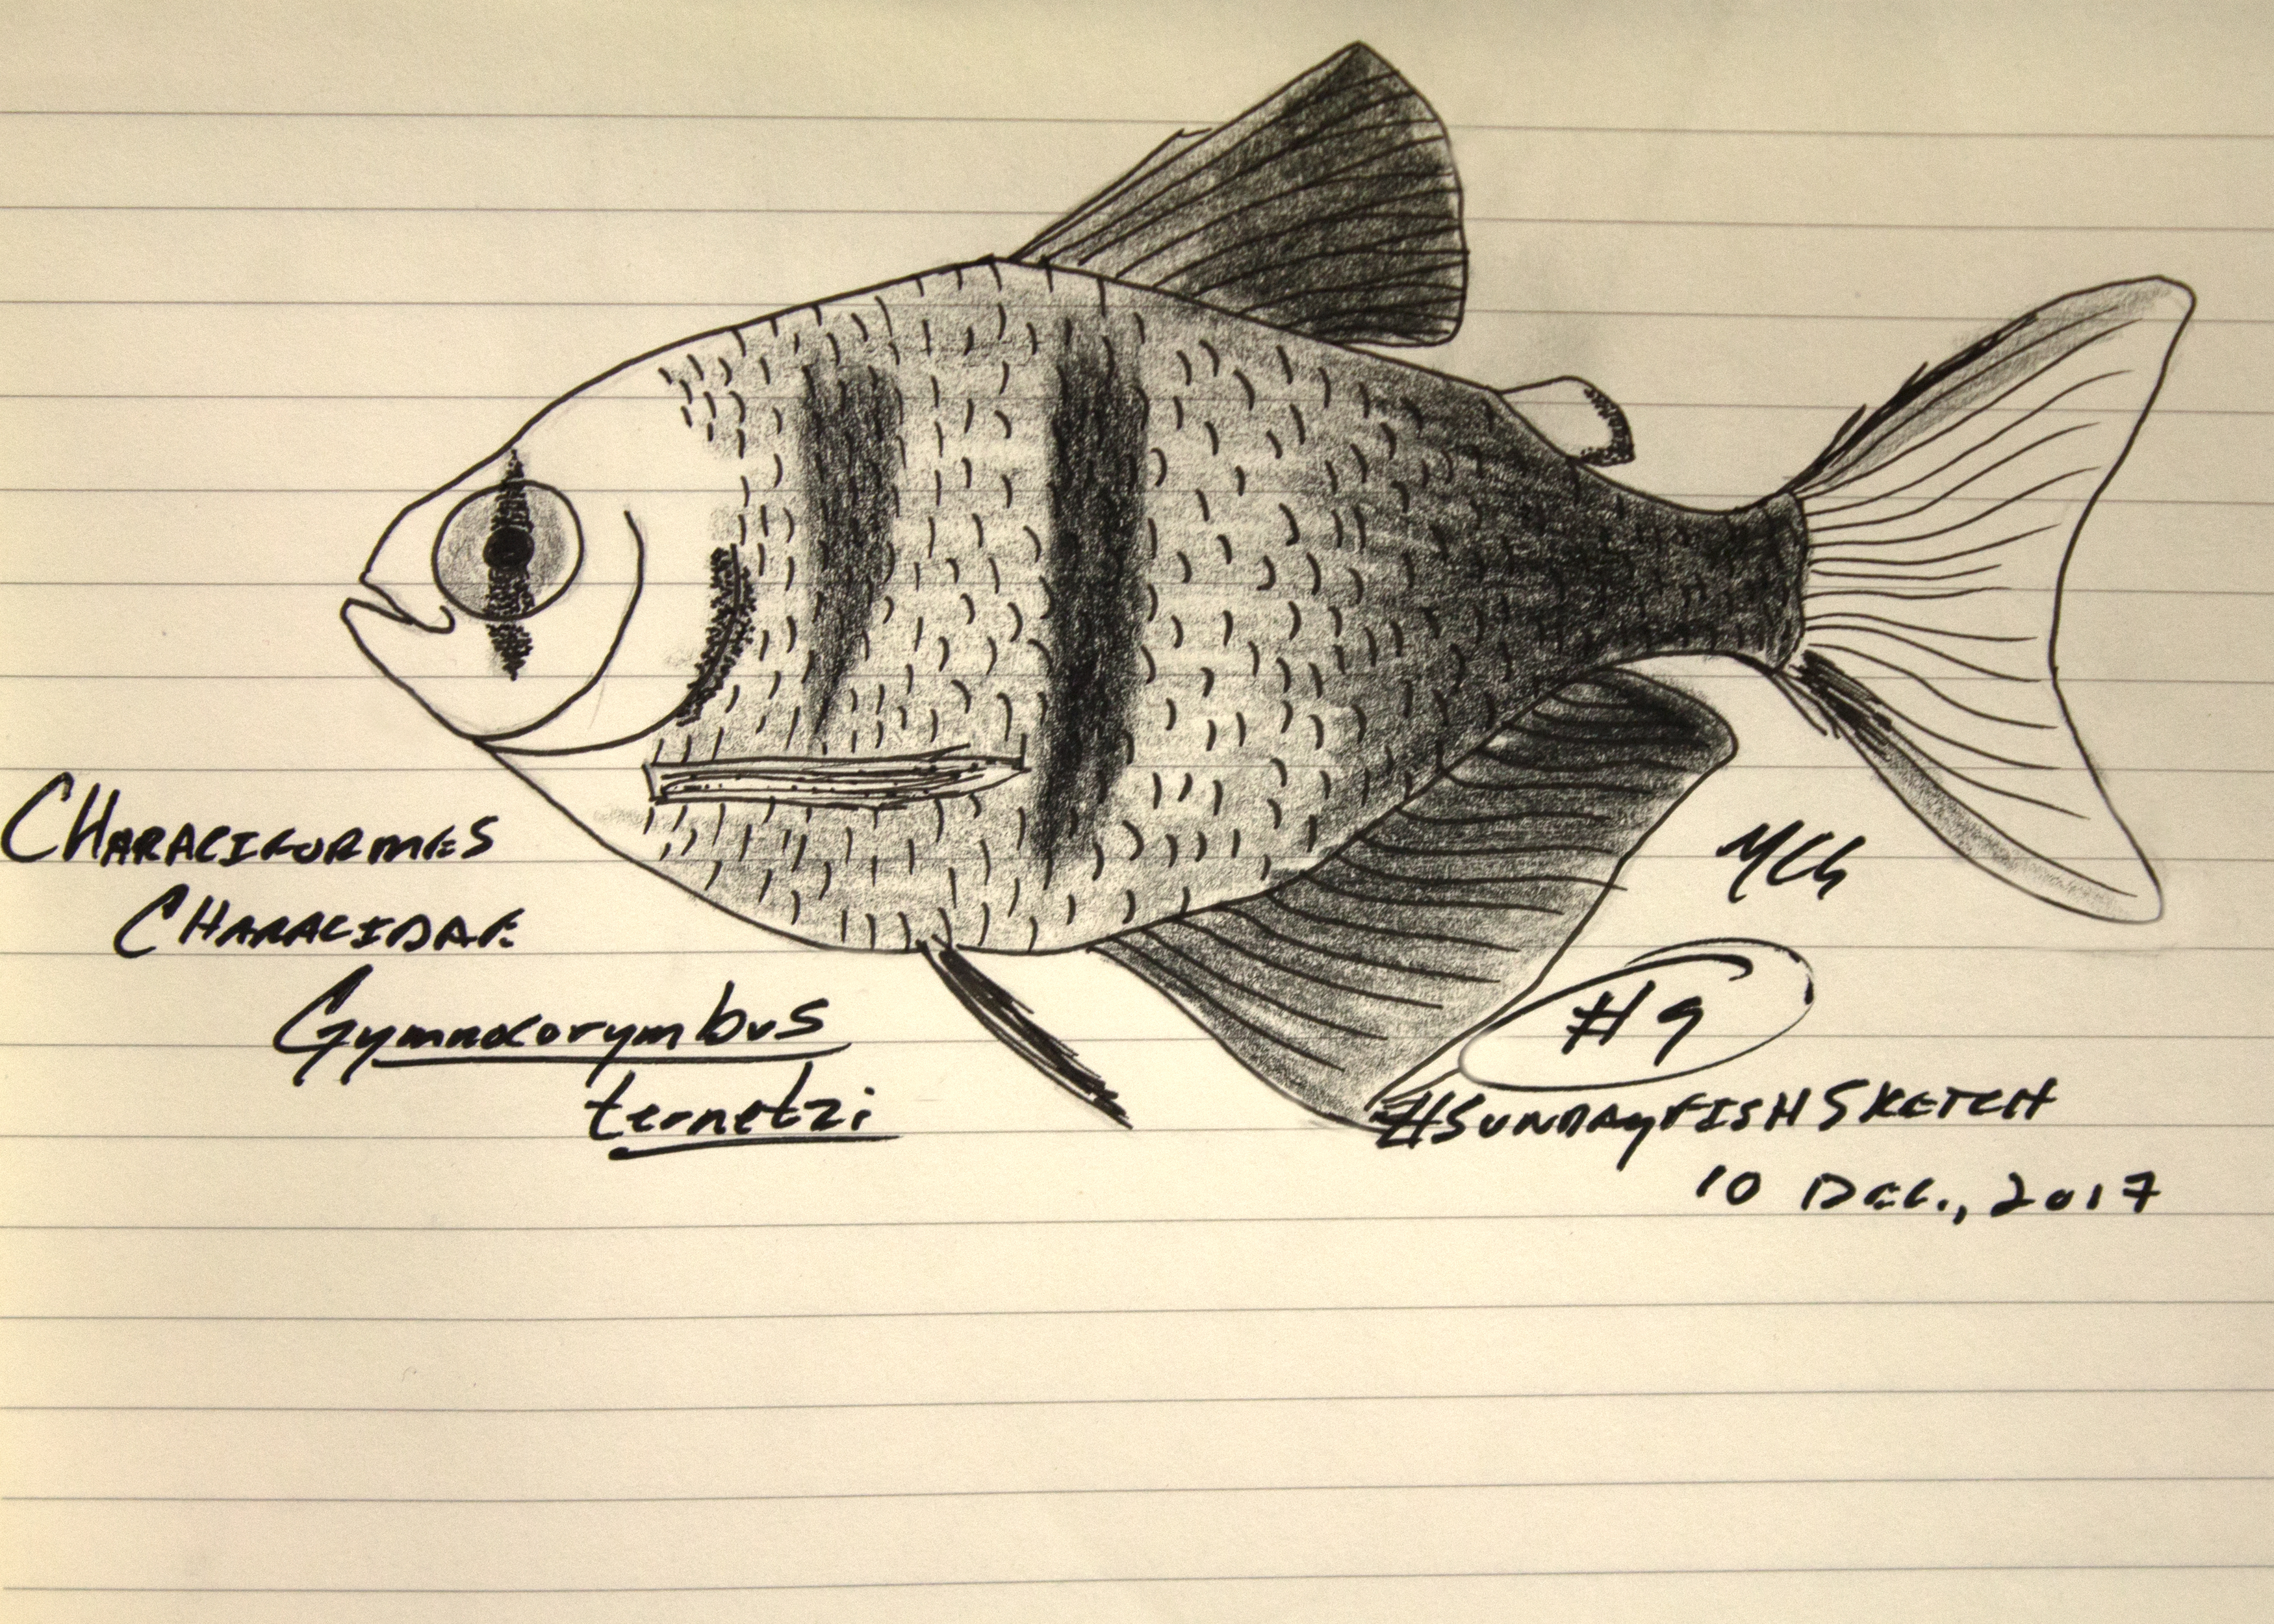 CHARACIFORMES
CHARACIDAE
Gymnocorymbus
ternetzi
MCh
#9
#SUNDAYFISHSKETCH
10 DEC., 2017